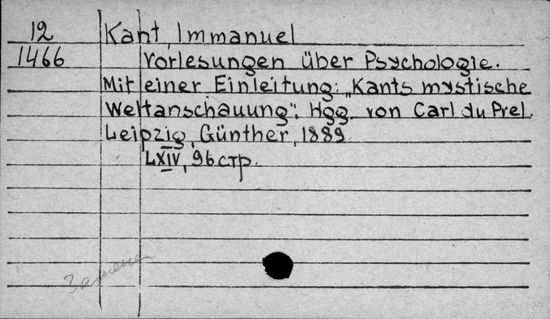 12
1466
Kant, Immanuel
Vorlesungen über Psychologie.
Mit einer Einleitung: „Kants mystische
Weltanschauung“. Hgg. von Carl du Prel.
Leipzig, Günther, 1889.
LXIV, 96 стр.
Замена